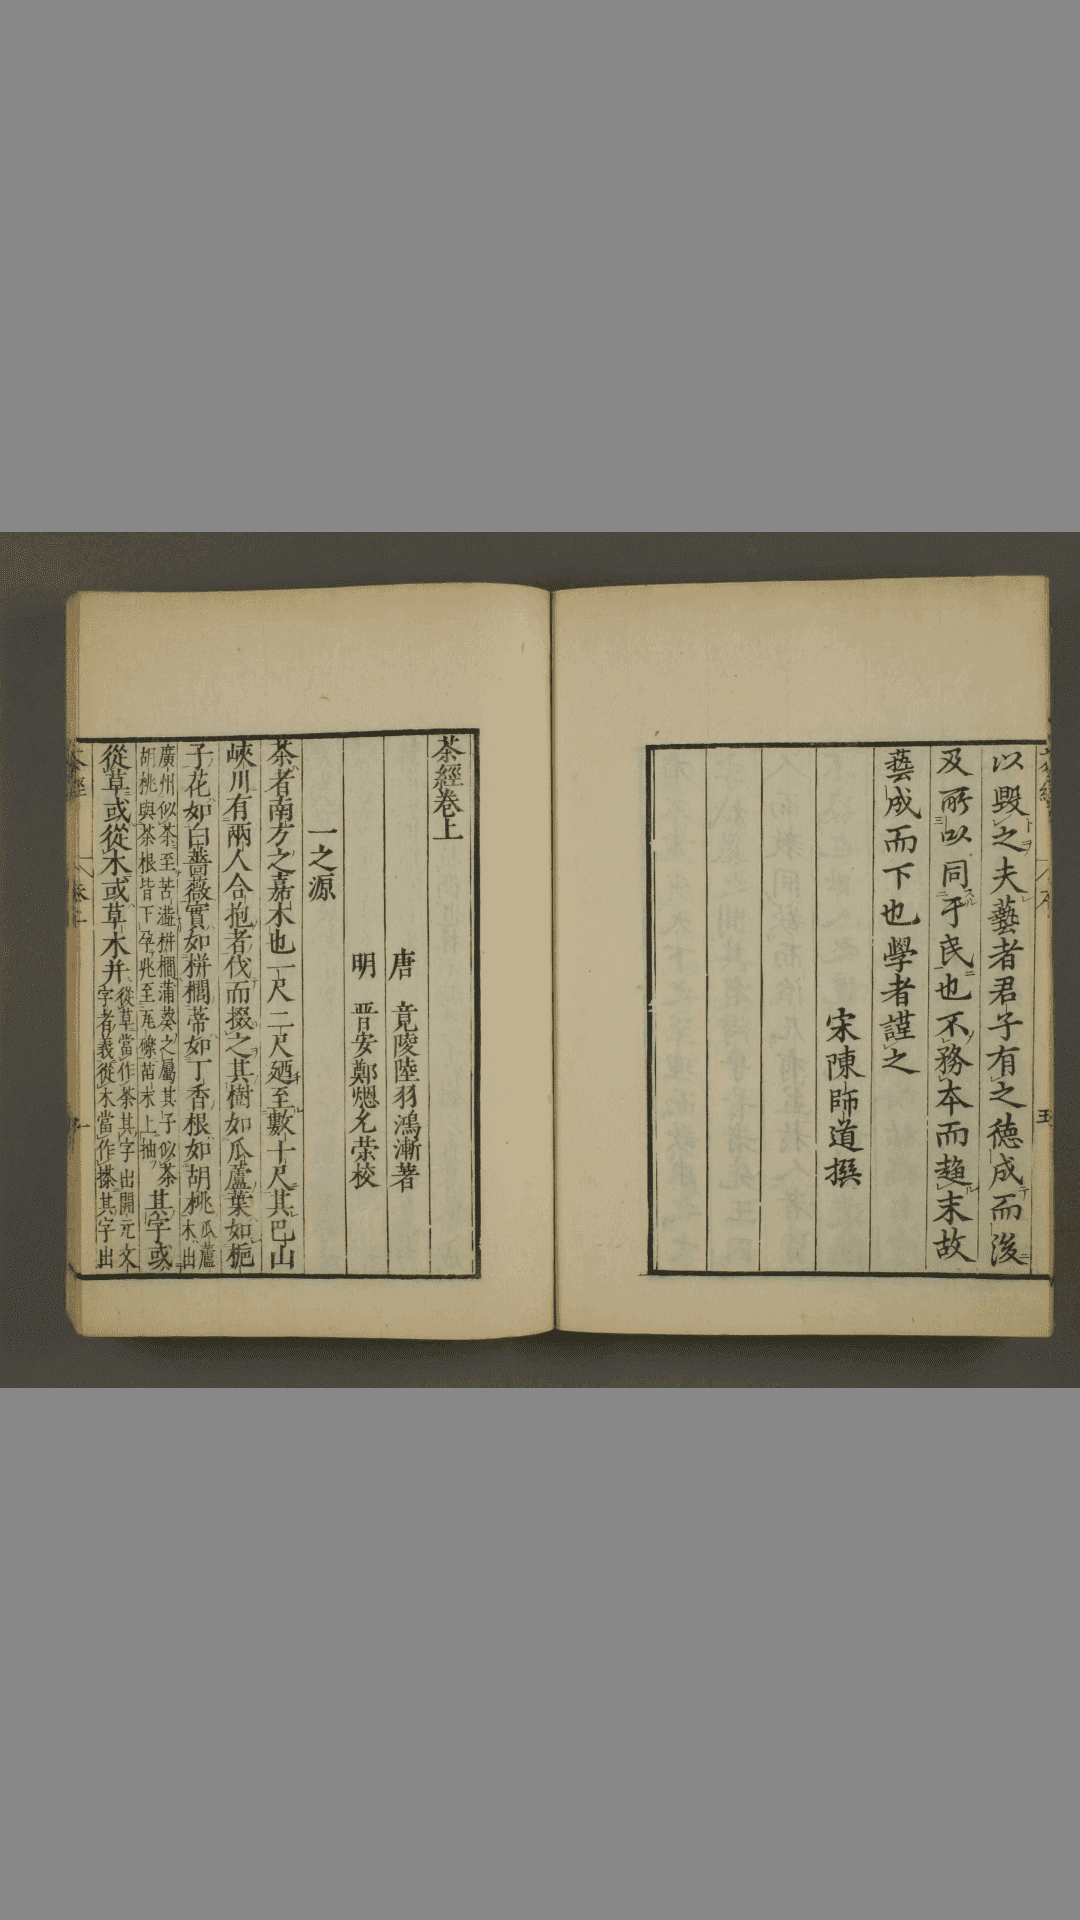 以毀之夫藝者君子有之德成而後
及所以同于民也不務本而趨末故
藝成而下也學者謹之
宋陳師道撰
茶經卷上
唐 竟陵陸羽鴻漸著
明 晋安鄭熜允荣校
一之源
茶者南方之嘉木也一尺二尺廼至數十尺其巴山
峽川有兩人合抱者伐而掇之其樹如瓜蘆葉如梔
子花如白薔薇實如栟櫚蒂如丁香根如胡桃瓜蘆木出
廣州似茶至苦澁栟櫚蒲葵之屬其子似茶
胡桃與茶根皆下孕兆至瓦礫苗木上抽
其字或
從草或從木或草木并
從草當作茶其字出開元文
字者義從木當作㮈其字出
茶經